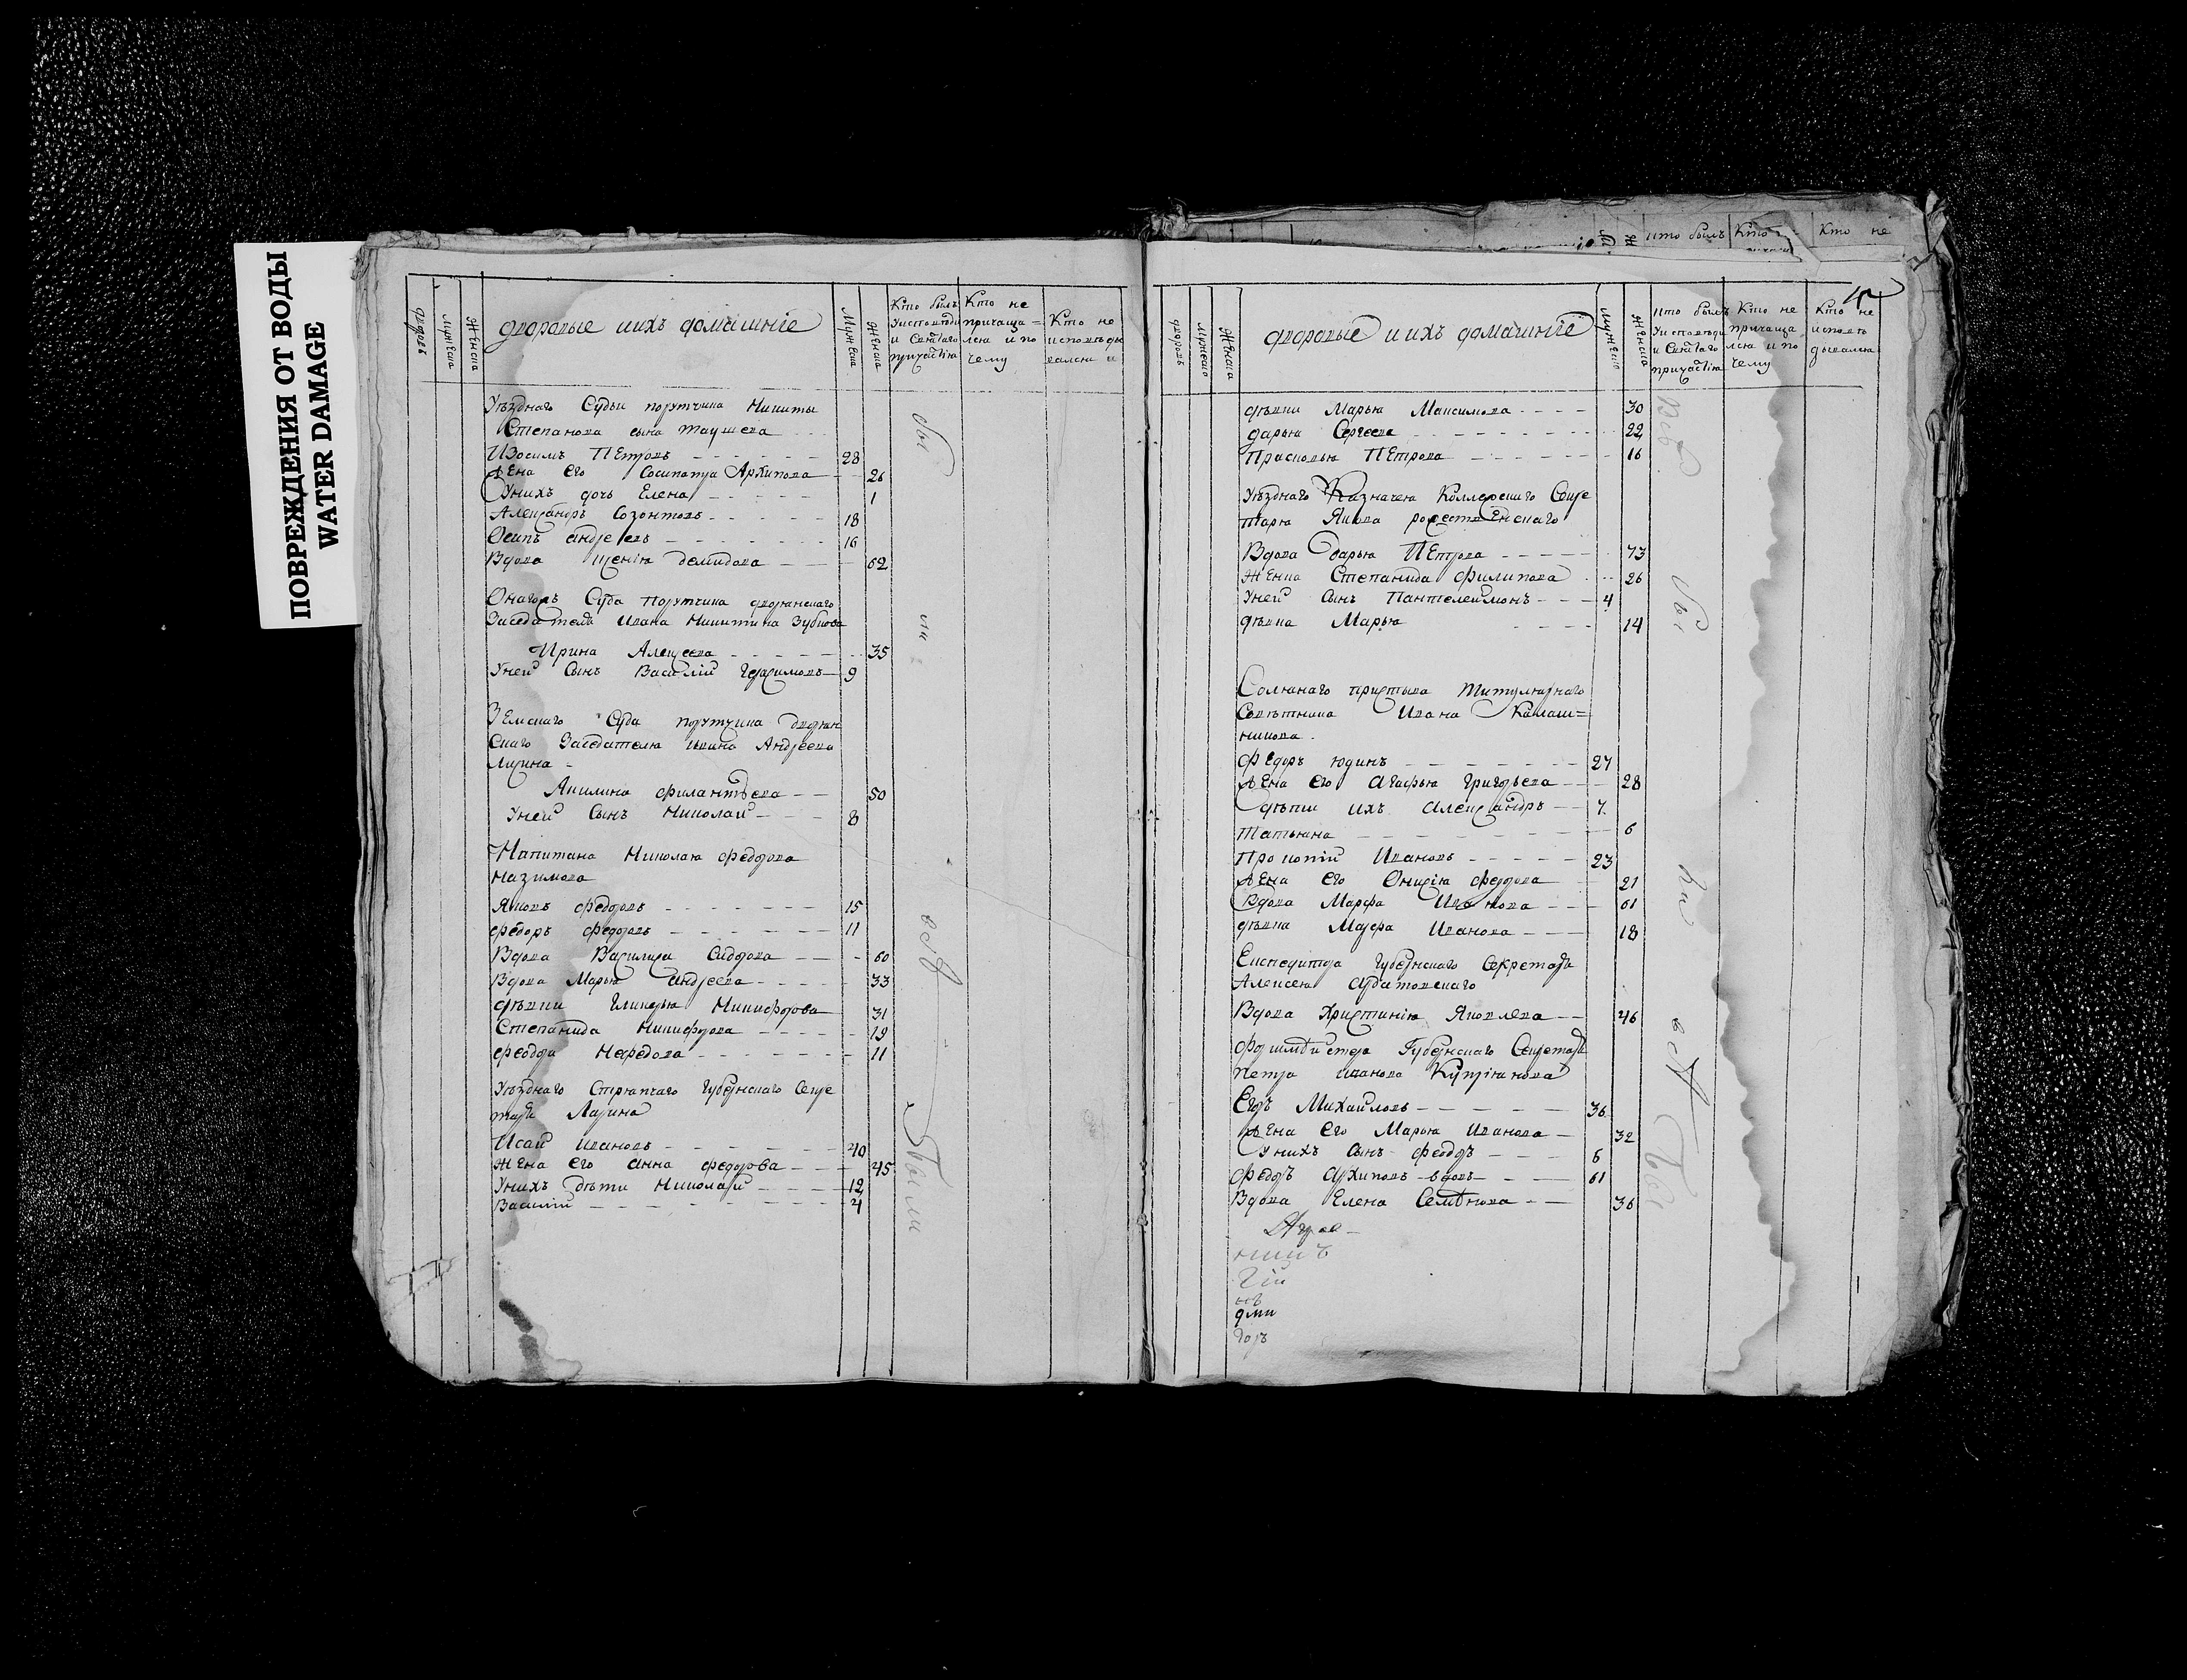 ПОВРЕЖДЕНИЯ ОТ ВОДЫ
WATER DAMAGE
что былъ Кто Кто не
дворовъ
Мужеска
Женска
дворовые и ихъ домашнiе
Мужеска
Женска
Кто былъ у исповѣди и святаго причастiя
Кто не причащался и по чему
Кто не исповѣдывался и
Уѣзднаго Судьи порутчика Никиты
Степанова сына Таушева
Изосимъ Петровъ 28
Жена его Сосипатра Архипова 26
У нихъ дочь Елена 1
Александръ Созонтовъ 18
Осипъ Андреевъ 16
Вдова Демидова 62
Онагожъ Суда порутчика дворянскаго
Заседателя Ивана Никитина Зубкова
Ирина Алексеева 35
У ней Сынъ Василiй Герасимовъ 9
Земскаго Суда порутчика дворян
скаго Заседателя Ивана Андреева
Ларина
Акилина Филантьева 50
У ней Сынъ Николай 8
Капитана Николая Федорова
Назимова
Яковъ Федоровъ 15
Федоръ Федоровъ 11
Вдова Василиса Сидорова 60
Вдова Марья Андреева 33
дѣвки Гликерья Никифорова 31
Степанида Никифорова 19
Феодора Нефедова 11
Уѣзднаго Стряпчаго Губернскаго Секре
таря Ларина
Исай Ивановъ 40
Жена его Анна Федорова 45
У нихъ дѣти Николай 12
Василiй 4
всѣ
были
дворовъ
Мужеско
Женска
дворовые и ихъ домашнiе
Мужеско
Женска
кто былъ у исповѣди и святаго причастiя
Кто не причащался и по чему
Кто не исповѣдывался
дѣвки Марья Максимова 30
Дарья Сергеева 22
Прасковья Петрова 16
Уѣзднаго Казначея Коллежскаго Секре
таря Якова рожественскаго
Вдова Дарья Петрова 73
Женка Степанида Филипова 26
У ней Сынъ Пантелеймонъ 4
дѣвка Марья 14
Солянаго пристава Титулярнаго
Советника Ивана Калаш=
никова
Федоръ Юдинъ 27
Жена его Агафья Григорьева 28
дѣти ихъ Александръ 7
Татьяна 6
Прокопiй Ивановъ 23
Жена его Федорова 21
Вдова Марфа Иванова 61
дѣвка Марфа Иванова 18
Експедитора Губернскаго Секретаря
Алексея
Вдова Христинiя Яковлева 46
Форшмѣистера Губернскаго Секретаря
Петра Иванова Купрiянова
Егоръ Михайловъ 36
Жена его Марья Иванова 32
У нихъ Сынъ Феодоръ 6
Федоръ Архиповъ вдовъ 61
Вдова Елена Семѣнова 36
всѣ
гiй
нъ
дми
доръ